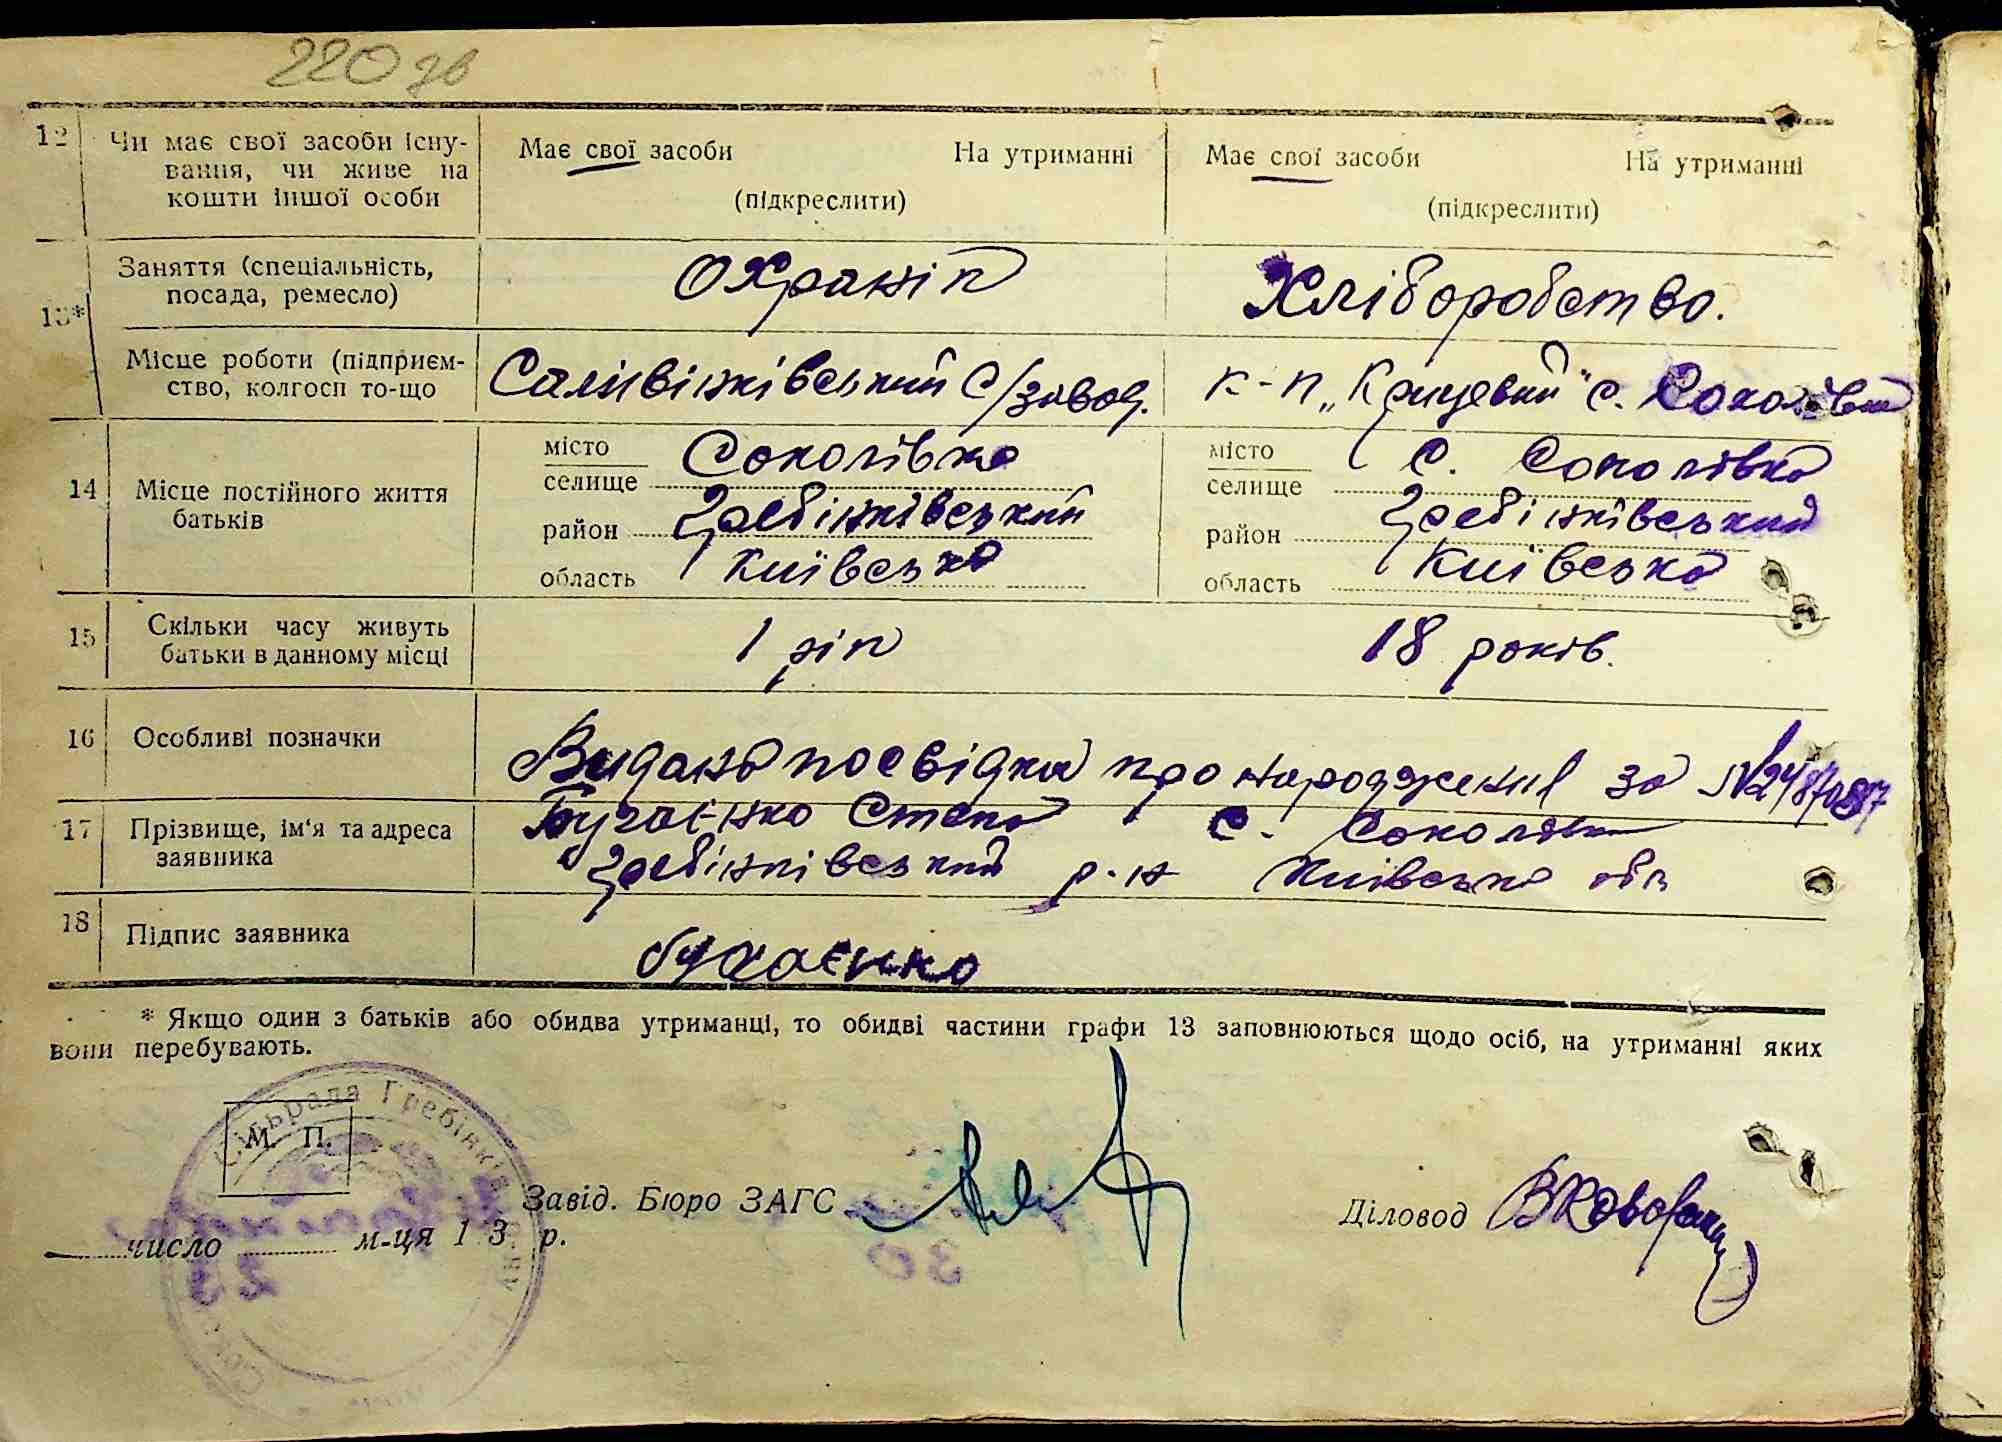 220 зв
12 Чи має свої засоби існу- Має свої засоби На утриманні Має свої засоби На утриманні
вання, чи живе на
кошти іншої особи (підкреслити) (підкреслити)
13* Заняття (спеціальність, Охранік Хліборобство.
посада, ремесло)
Місце роботи (підприєм- Саливінківський С/завод. к-п „Крицевий" с. Соколівка
ство, колгосп то-що
14 Місце постійного життя батьків
місто селище Соколівка місто селище С. Соколівка
район Гребінківський район Гребінківський
область Київська область Київська
15 Скільки часу живуть 1 рік 18 років.
батьки в данному місці
16 Особливі позначки Видана посвідка про народження за №
17 Прізвище, ім'я та адреса Бугаєнко Степан с. Соколівка
заявника Гребінківський р-н Київська обл
18 Підпис заявника бугаєнко
* Якщо один з батьків або обидва утриманці, то обидві частини графи 13 заповнюються щодо осіб, на утриманні яких
вони перебувають.
Сільрада Гребінків
М. П.
Завід. Бюро ЗАГС Діловод
число м-ця 1 3 р.